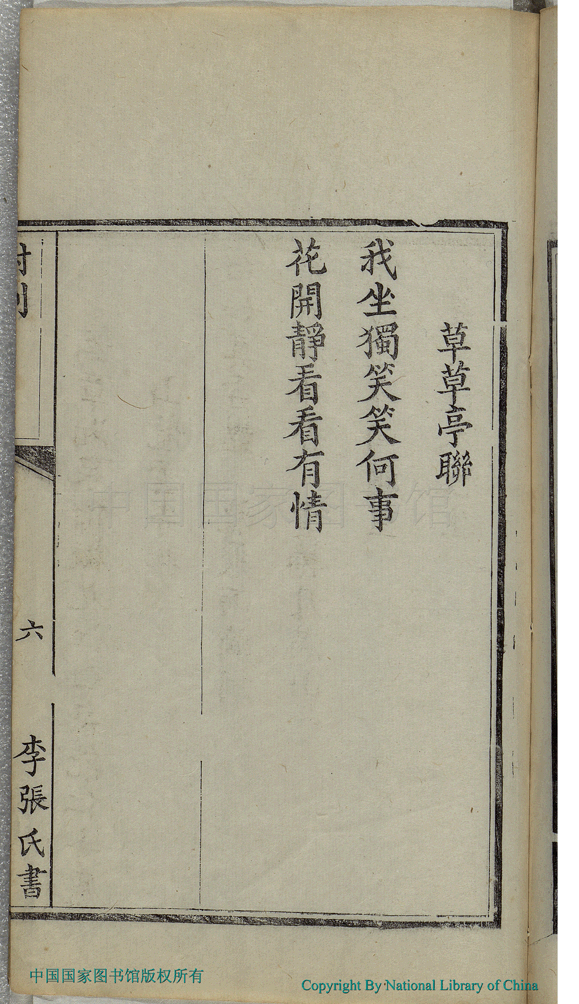 草草亭聯
我坐獨笑笑何事
花開靜看看有情
附刊
六
李張氏書
中国国家图书馆
中国国家图书馆版权所有
Copyright By National Library of China